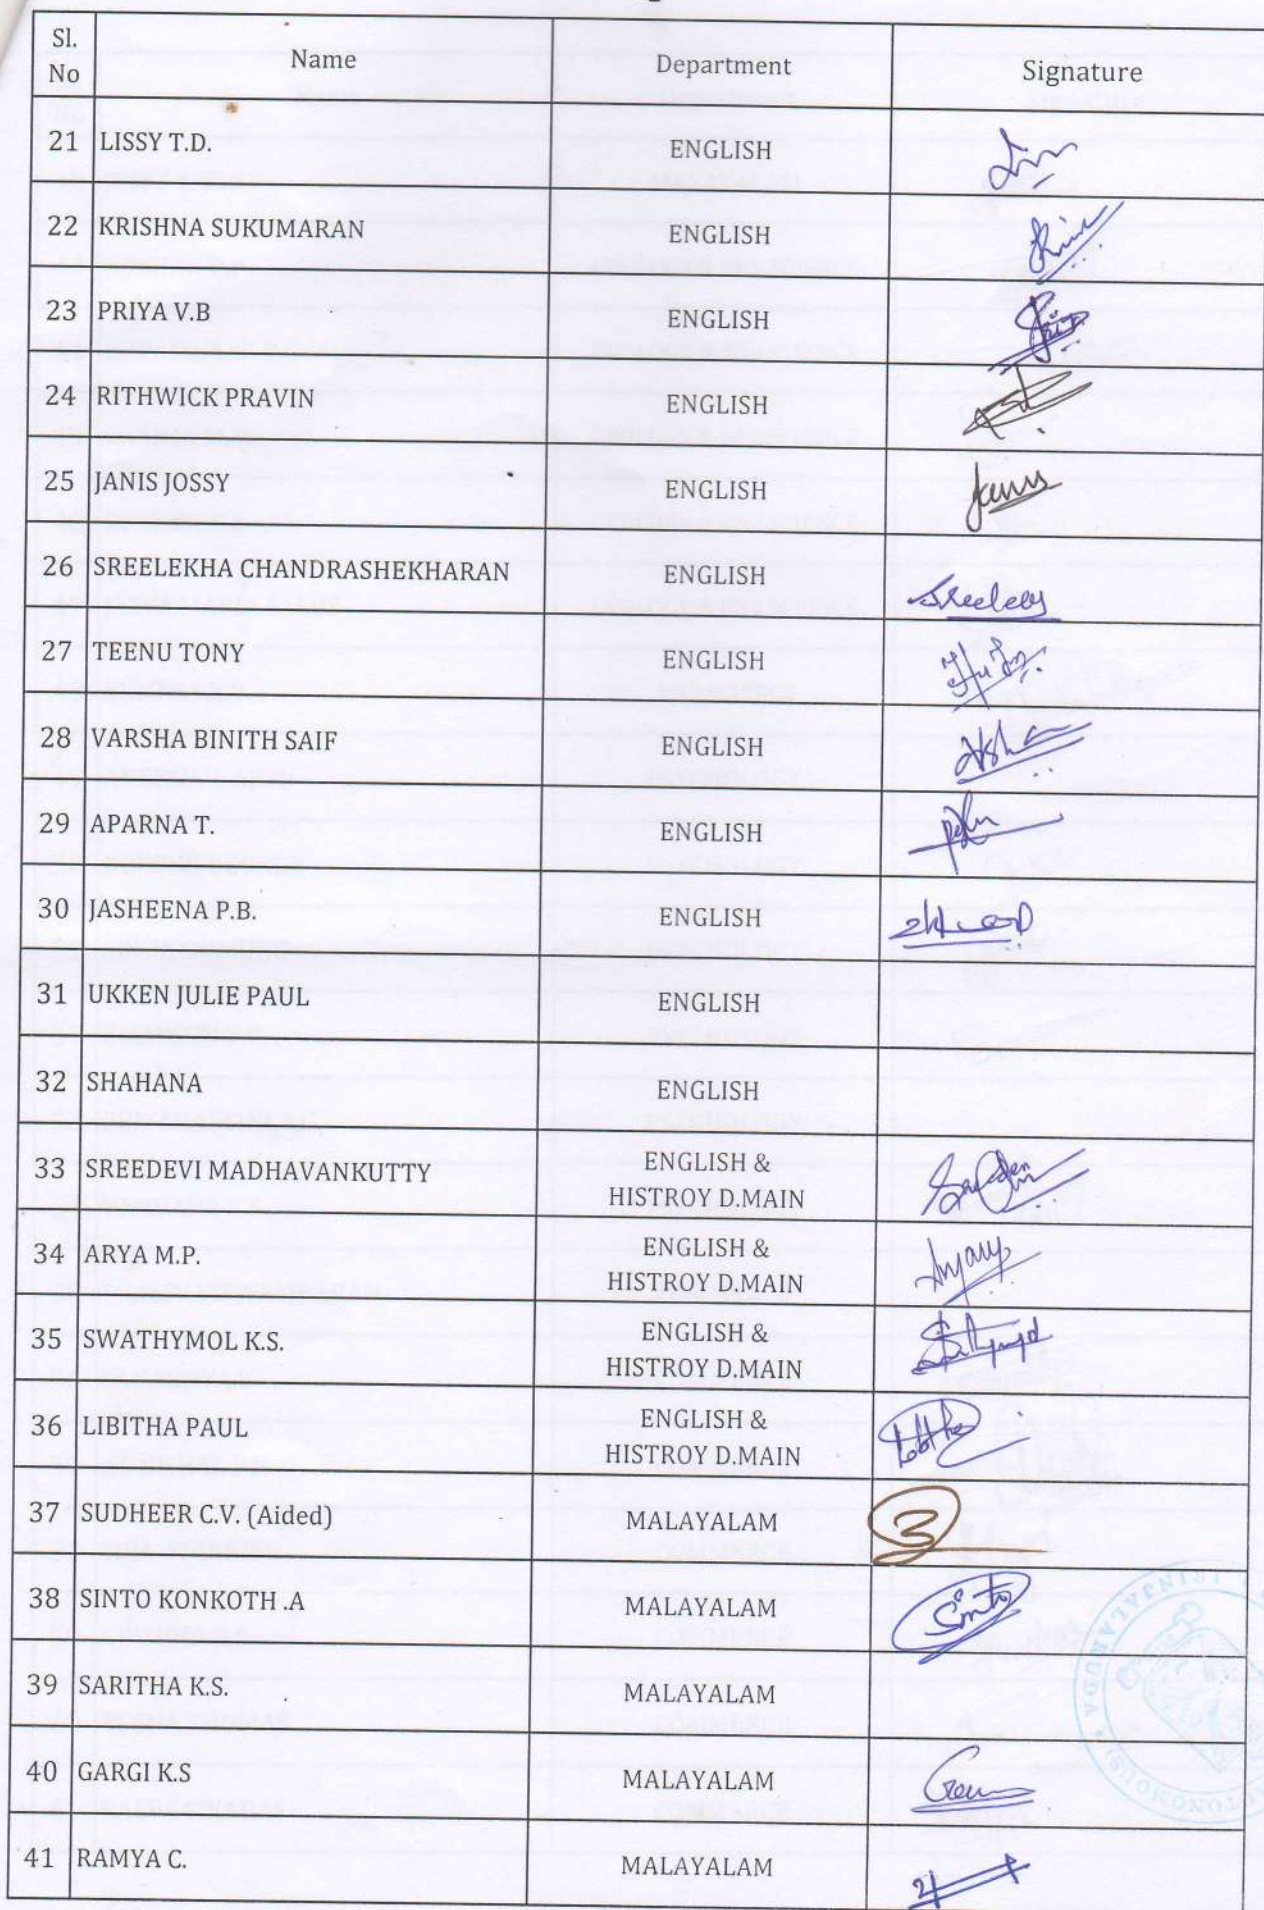 Sl. No Name Department Signature
21 LISSY T.D. ENGLISH
22 KRISHNA SUKUMARAN ENGLISH
23 PRIYA V.B ENGLISH
24 RITHWICK PRAVIN ENGLISH
25 JANIS JOSSY ENGLISH Janis
26 SREELEKHA CHANDRASHEKHARAN ENGLISH
27 TEENU TONY ENGLISH
28 VARSHA BINITH SAIF ENGLISH
29 APARNA T. ENGLISH
30 JASHEENA P.B. ENGLISH
31 UKKEN JULIE PAUL ENGLISH
32 SHAHANA ENGLISH
33 SREEDEVI MADHAVANKUTTY ENGLISH &
HISTROY D.MAIN
34 ARYA M.P. ENGLISH &
HISTROY D.MAIN
35 SWATHYMOL K.S. ENGLISH &
HISTROY D.MAIN
36 LIBITHA PAUL ENGLISH &
HISTROY D.MAIN
37 SUDHEER C.V. (Aided) MALAYALAM
38 SINTO KONKOTH .A MALAYALAM Sinto
39 SARITHA K.S. MALAYALAM
40 GARGI K.S MALAYALAM
41 RAMYA C. MALAYALAM